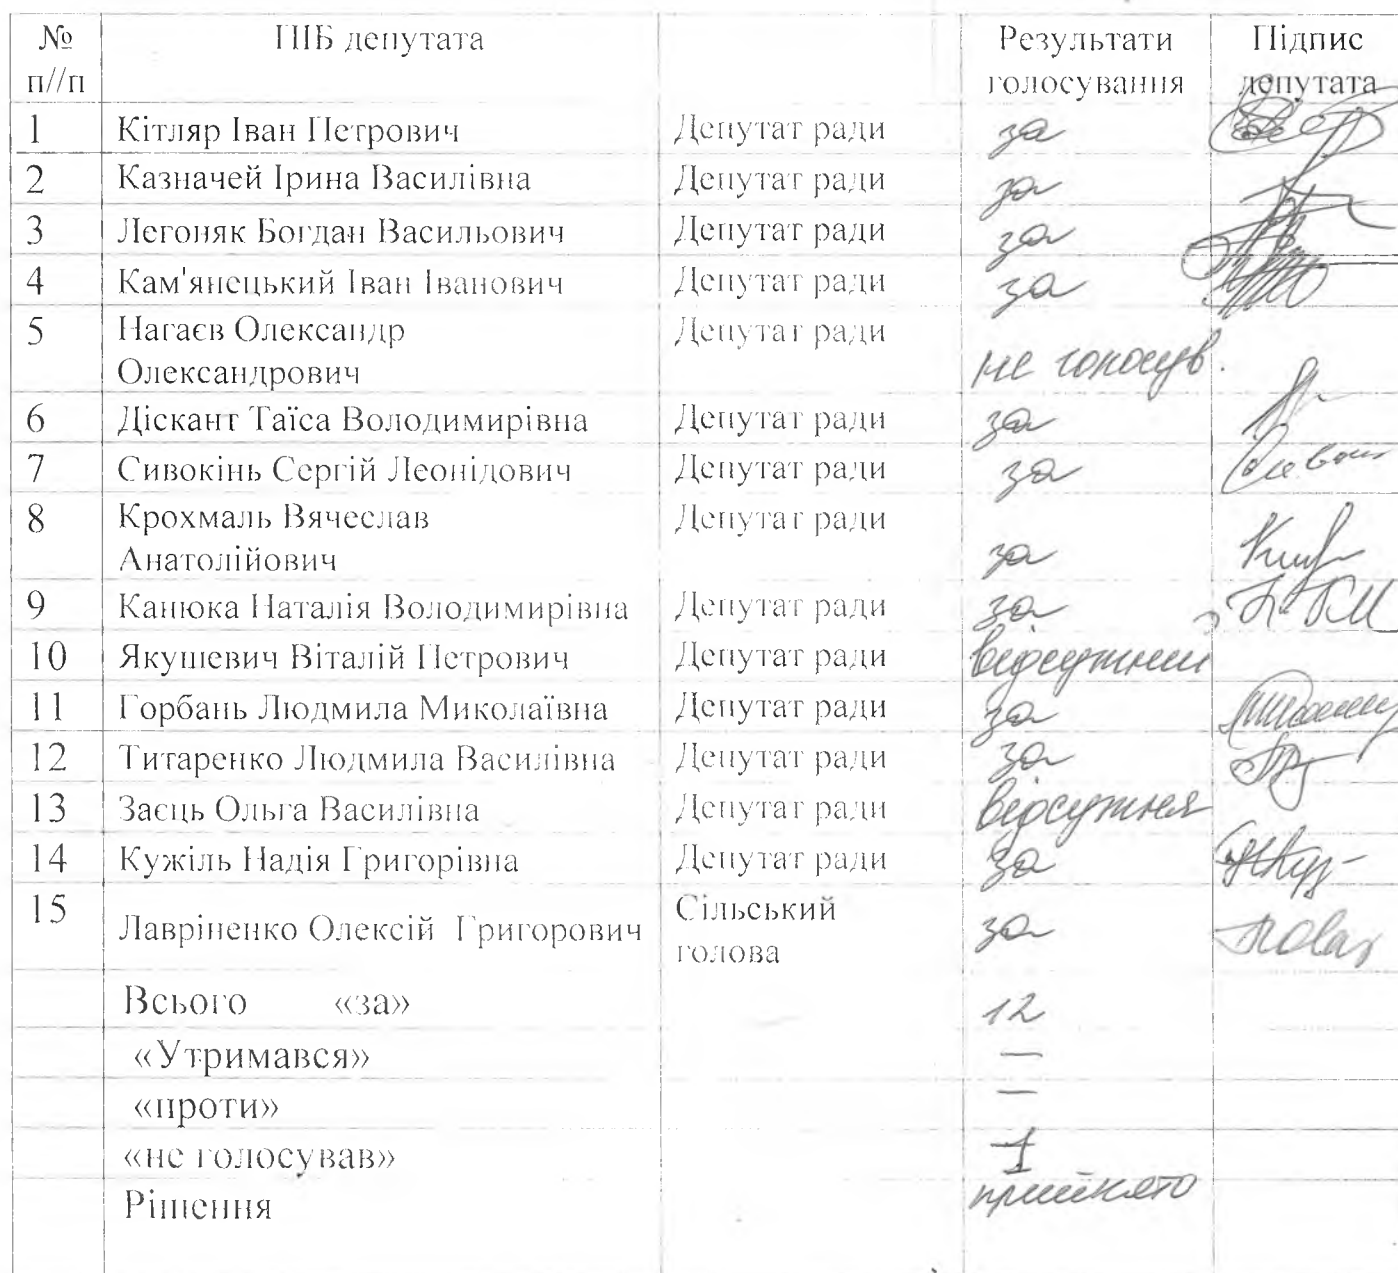 № ПІБ депутата Результати Підпис
п//п голосування депутата
1 Кітляр Іван Петрович Депутат ради за
2 Казначей Ірина Василівна Депутат ради за
3 Легоняк Богдан Васильович Депутат ради за
4 Кам'янецький Іван Іванович Депутат ради за
5 Нагаєв Олександр Депутат ради
Олександрович не голосув.
6 Діскант Таїса Володимирівна Депутат ради за
7 Сивокінь Сергій Леонідович Депутат ради за
8 Крохмаль Вячеслав Депутат ради
Анатолійович за
9 Канюка Наталія Володимирівна Депутат ради за
10 Якушевич Віталій Петрович Депутат ради відсутний
11 Горбань Людмила Миколаївна Депутат ради за
12 Титаренко Людмила Василівна Депутат ради за
13 Заєць Ольга Василівна Депутат ради відсутня
14 Кужіль Надія Григорівна Депутат ради за
15 Сільський
Лавріненко Олексій Григорович за
голова
Всього «за» 12
«Утримався» —
«проти» —
«не голосував» 1
Рішення прийнято